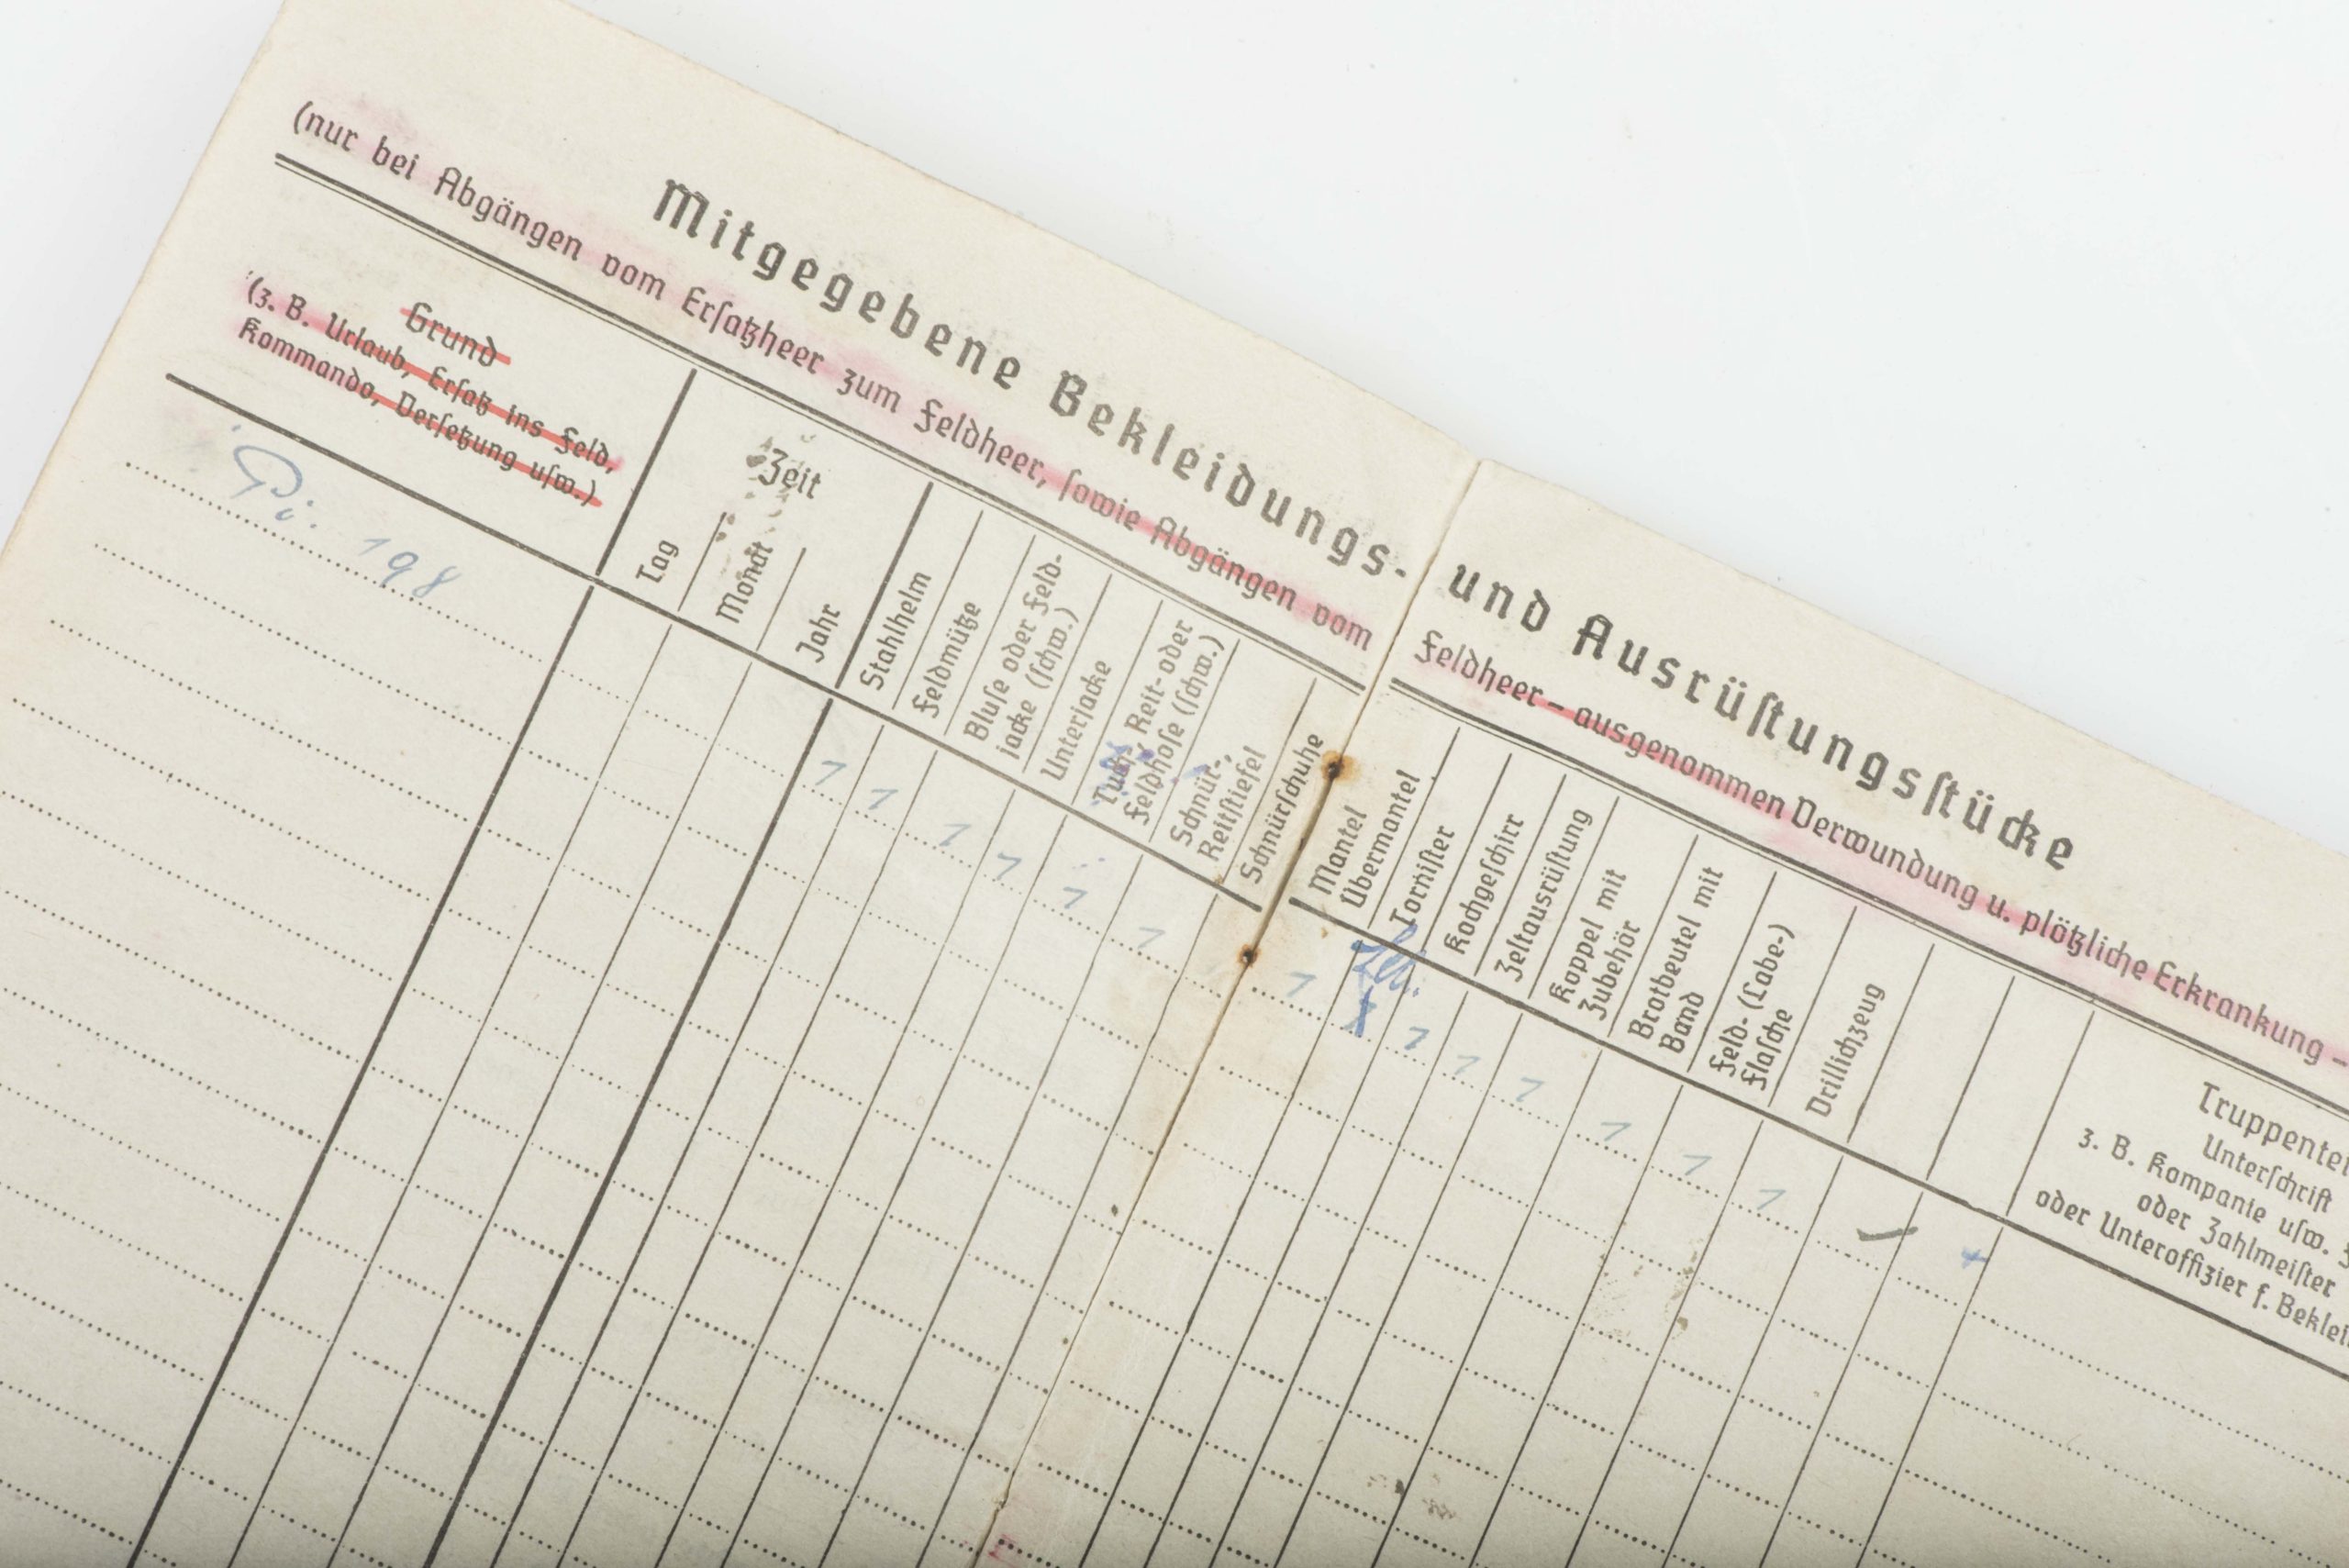 Mitgegebene Bekleidungs- und Ausrüſtungsſtücke
(nur bei Abgängen vom Erſatzheer zum Feldheer, ſowie Abgängen vom Feldheer – ausgenommen Verwundung u. plötzliche Erkrankung –
Grund
(z. B. Urlaub, Erſatz ins Feld,
Kommando, Verſetzung uſw.)
Zeit
Tag
Monat
Jahr
Stahlhelm
Feldmütze
Bluſe oder Feld-
jacke (ſchw.)
Unterjacke
Tuch-, Reit- oder
Feldhoſe (ſchw.)
Schnür-,
Reitſtiefel
Schnürſchuhe
Mantel
Übermantel
Torniſter
Kochgeſchirr
Zeltausrüſtung
Koppel mit
Zubehör
Brotbeutel mit
Band
Feld- (Labe-)
flaſche
Drillichzeug
Unterſchrift
z. B. Kompanie uſw.
oder Zahlmeiſter
oder Unteroffizier f.
Pi. 198
1 1 1 1 1 1 1 1 1 1 1 1 1